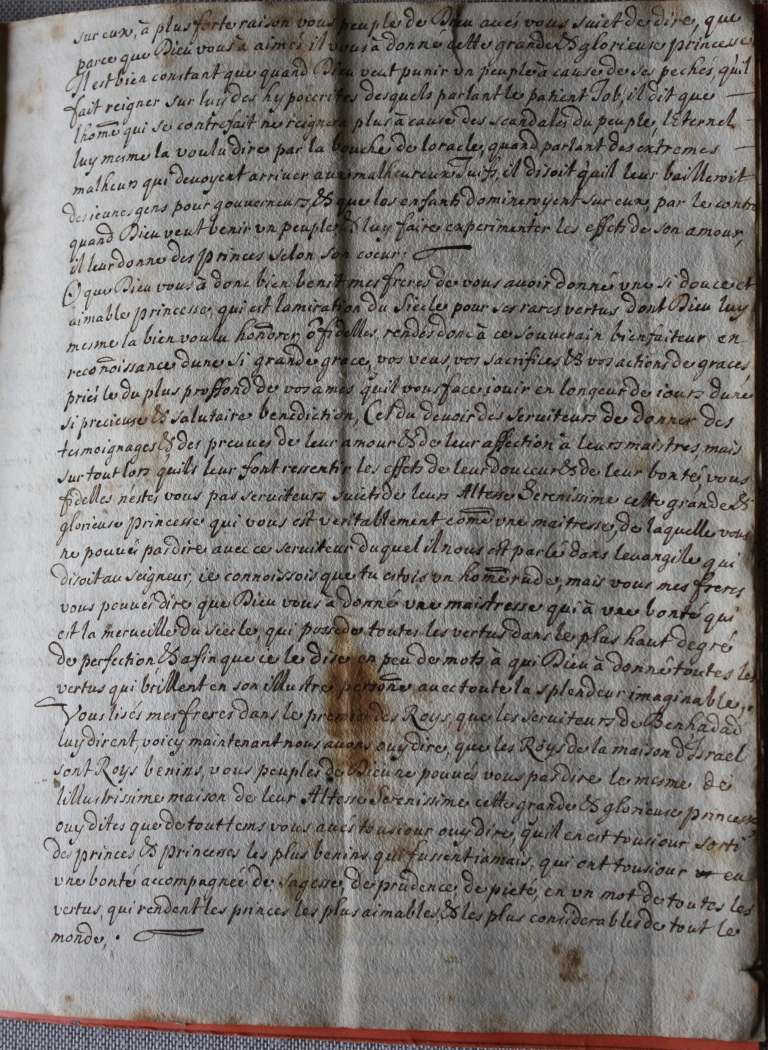 sur eux, à plus forte raison vous peuple de Dieu aués vous suiet de dire, que
parce que Dieu vous à aimés il vous à donné cette grande & glorieuse princesse
Il est bien constant que quand Dieu veut punir un peuple à cause de ses pechés, quil
fait reigner sur luy des hypocrites desquels parlant le patient Iob, il dit que
lhome qui se contrefait ne reignera plus à cause des scandales du peuple, lEternel
luy mesme la voulu dire par la bouche de loracle, quand parlant des extremes
malheurs qui devoyent arriuer aux malheureux Iuifs, il disoit quil leur bailleroit
des ieunes gens pour gouuerneurs & que les enfants domineroyent sur eux, par le contre
quand Dieu veut benir un peuple & luy faire experimenter les effets de son amour,
il leur donne des princes selon son coeur;
O que Dieu vous à donc bien benit mes freres de vous auoir donné vne si douce et
aimable princesse, qui est lamiration du Siecle pour ses rares vertus dont Dieu luy
mesme la bien voulu honorer, ô fidelles, rendes donc à ce souuerain bienfaiteur en
recoñoissance dune si grande grace, vos veus vos sacrifices & vos actions de graces
priés le du plus proffond de vos ames quil vous face iouir en longeur de iours dune
si precieuse & salutaire benediction, Cest du deuoir des seruiteurs de donner des
tesmoignages & des preuues de leur amour & de leur affection à leurs maistres, mais
sur tout lors quils leur font ressentir les effets de leur douceur & de leur bonté, vous
fidelles nestes vous pas seruiteurs suiets de leurs Altesse Serenissime cette grande &
glorieuse princesse qui vous est veritablement come vne maitresse, de laquelle vous
ne pouués pas dire auec ce seruiteur duquel il nous est parlé dans leuangile qui
disoit au seigneur, ie connoissois que tu estois vn home rude, mais vous mes freres
vous pouués dire que Dieu vous à donné vne maistresse qui à vne bonté qui
est la merueille du siecle, qui possede toutes les vertus dans le plus haut degré
de perfection & afin que ie le dise en peu de mots à qui Dieu à donné toutes les
vertus qui brillent en son illustre persone auec toute la splendeur imaginable,
Vous lisés mes freres dans le premier des Roys, que les seruiteurs de Benhadad
luy dirent, voicy maintenant nous auons ouy dire, que les Roys de la maison dIsrael
sont Roys benins, vous peuples de Dieu ne pouués vous pas dire le mesme de
lillustrissime maison de leur Altesse Serenissime cette grande & glorieuse princesse
ouy dites que de tout tems vous aués tousiour ouy dire, quil en est tousiour sorti
des princes & princesses les plus benins qui fussent iamais, qui ont tousiour eu
vne bonté accompagneé de sagesse, de prudence de pieté, en vn mot de toutes les
vertus, qui rendent les princes les plus aimables, & les plus considerables de tout le
monde,